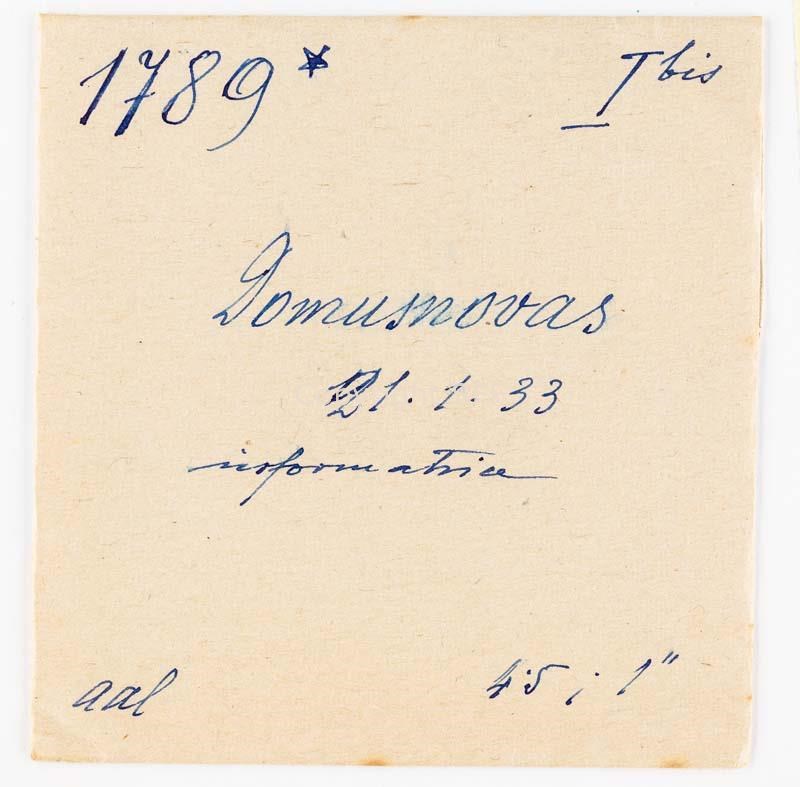 1789* I bis
Domusnovas
21. 1. 33
informatrice
aal 4.5 ; 1"